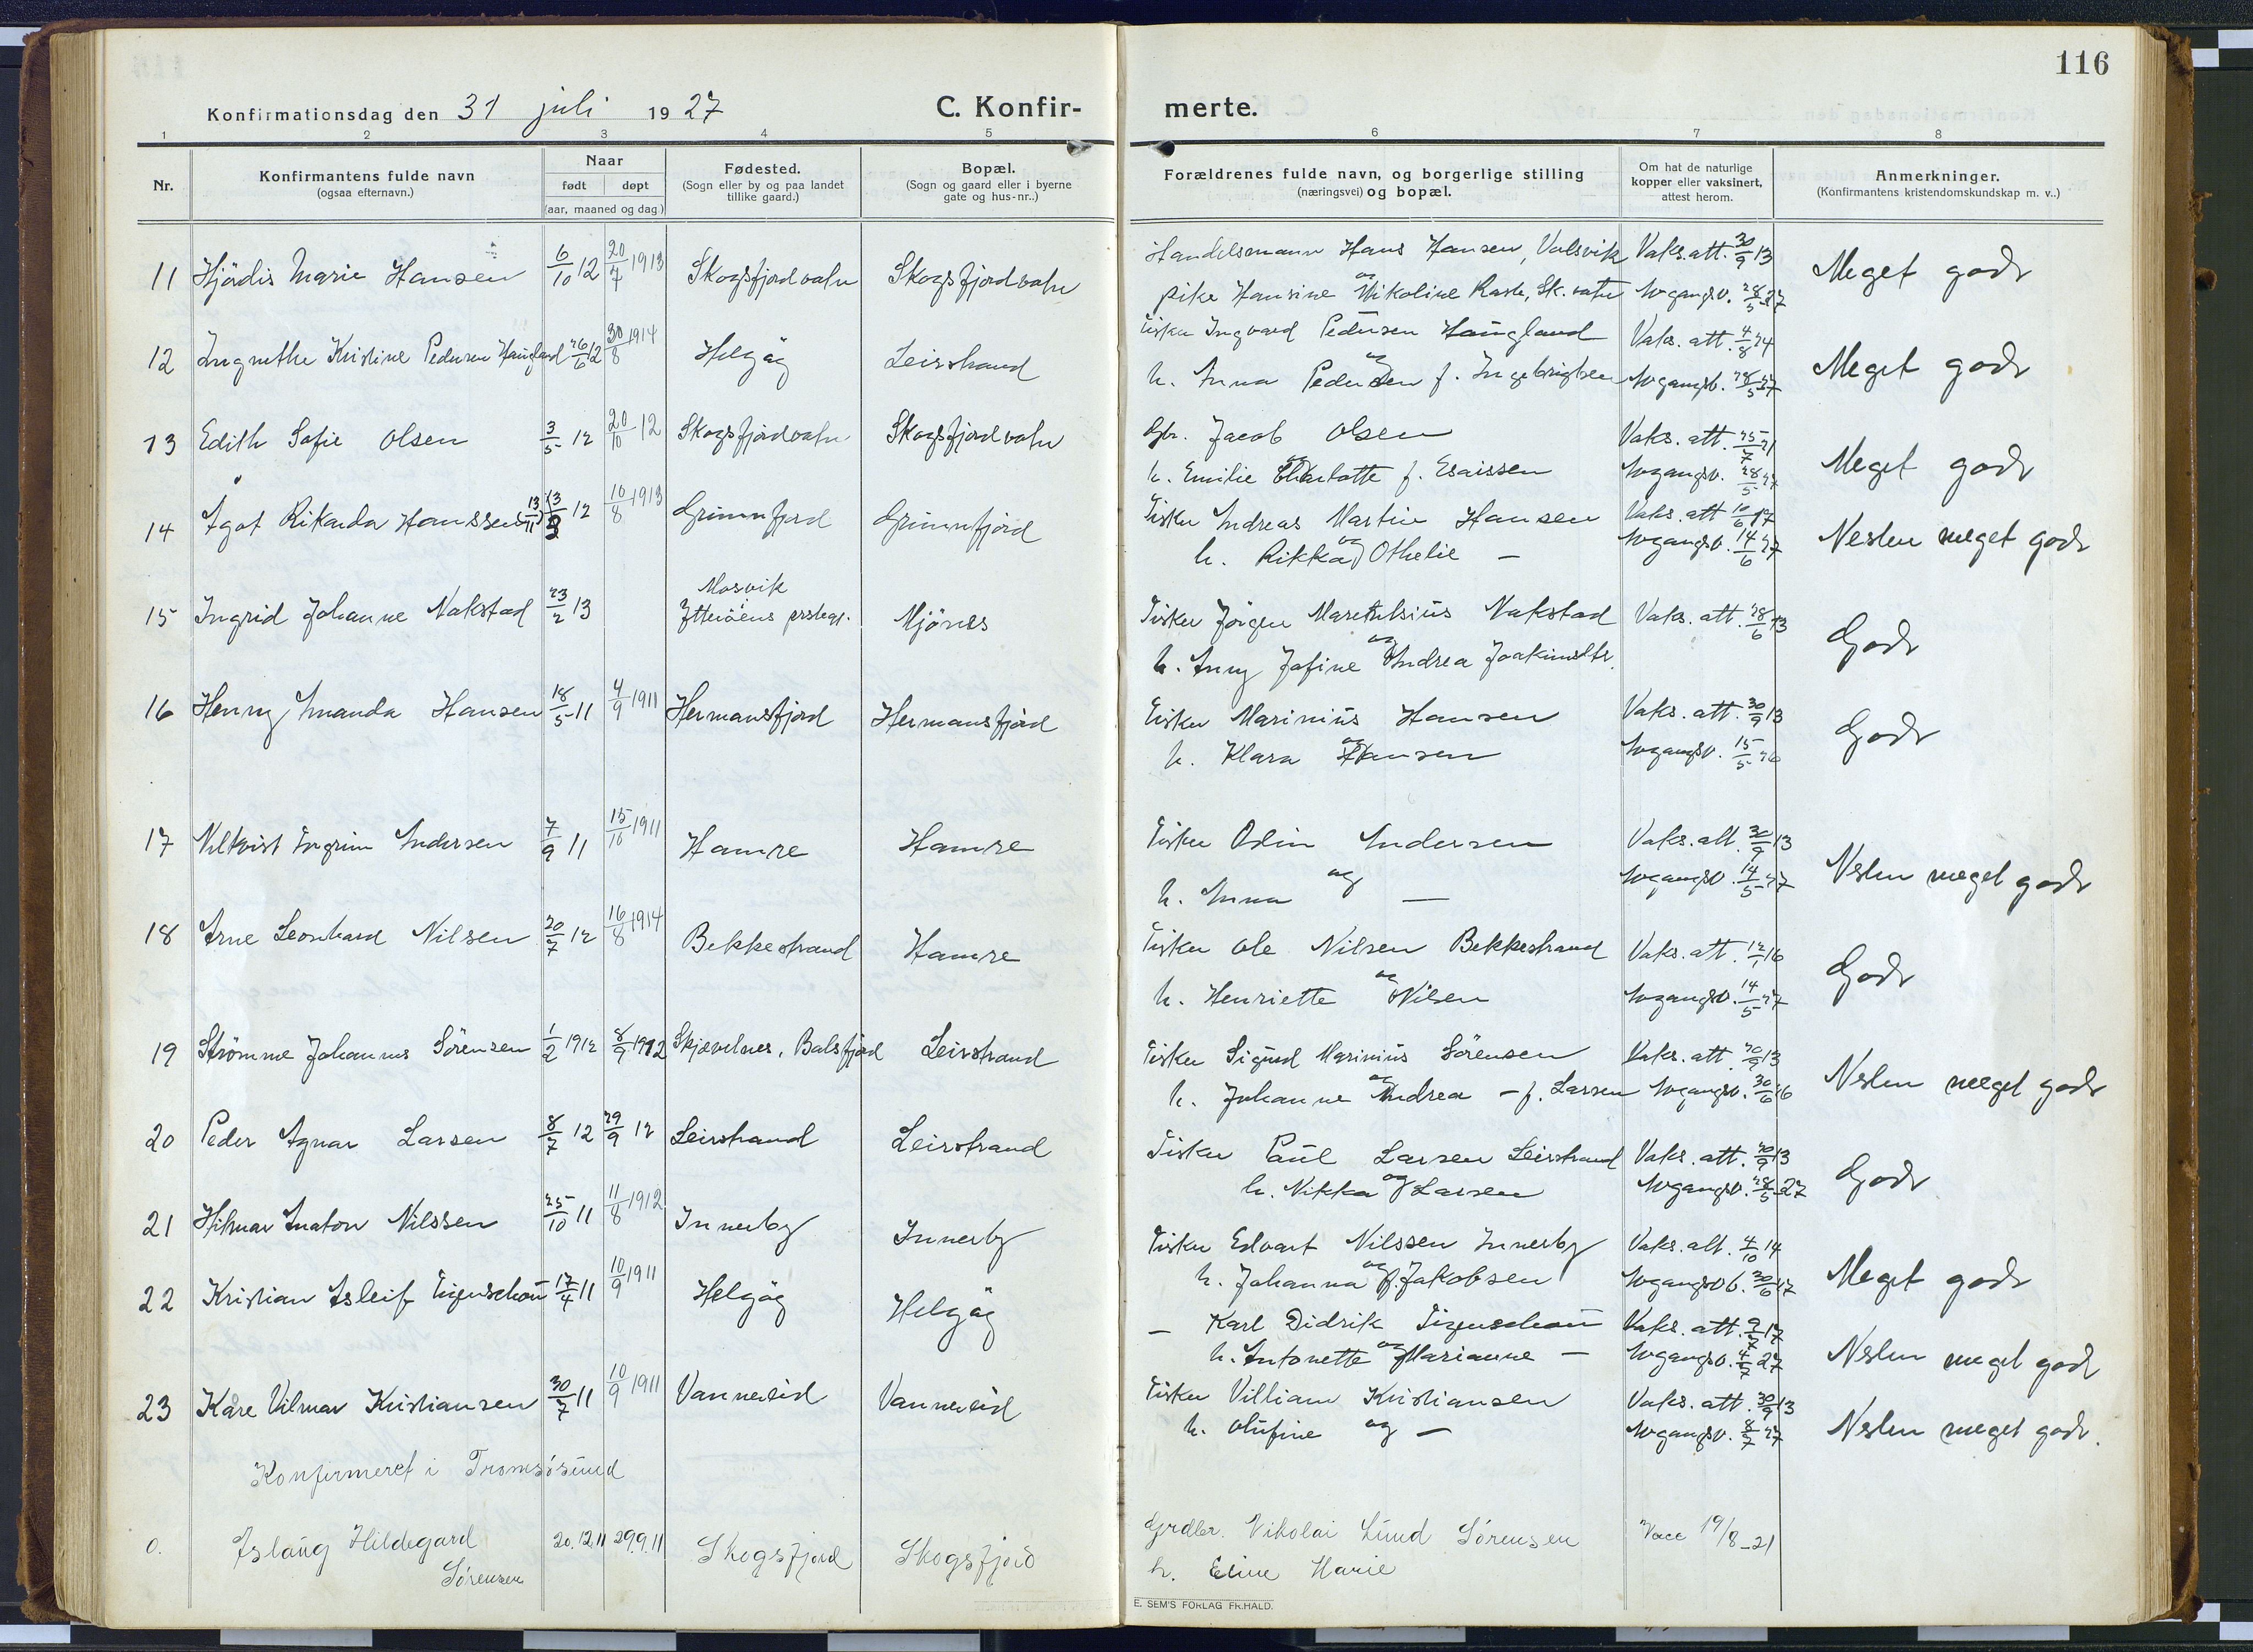 116
Konfirmationsdag den 31 juli 1927
C. Konfirmerte.
1 2 3 4 5 6 7 8
Nr.
Konfirmantens fulde navn
(ogsaa efternavn.)
Naar
født døpt
(aar, maaned og dag)
Fødested.
(Sogn eller by og paa landet
tillike gaard.)
Bopæl.
(Sogn og gaard eller i byerne
gate og hus-nr..)
Forældrenes fulde navn, og borgerlige stilling
(næringsvei) og bopæl.
Om hat de naturlige
kopper eller vaksinert,
attest herom.
Anmerkninger.
(Konfirmantens kristendomskundskap m. v..)
11 Hjördis Marie Hansen 6/10 12 20/7 1913 Skogsfjordvatn Skogsfjordvatn
Handelsmann Hans Hansen, Valsvik Vaks. att. 30/9 13 Meget godt
og
pike Hansine Nikoline Rask, Sk. vatn 28/5 27
12 Ingrethe Kristine Pedersen Haugland 26/6 12 30/8 1914 Helgöy Leirstrand
Fisker Ingvard Pedersen Haugland Vaks. att. 4/8 24 Meget godt
og
h. Anna Pedersen f. Ingebrigtsen 28/5 27
13 Edith Sofie Olsen 3/5 12 20/10 12 Skogsfjordvatn Skogsfjordvatn
Gbr. Jacob Olsen Vaks. att. 25/7 21 Meget godt
og
h. Emilie Charlotte f. Esaissen 28/5 27
14 Agot Rikarda Hanssen 13/11 12 10/8 1913 Grunnfjord Grunnfjord
Fisker Andreas Martin Hansen Vaks. att 10/6 17 Nesten meget godt
og
h. Rikka Othelie — 14/6 27
15 Ingrid Johanne Nakstad 23/2 13 Mosvik
Ytteröens prstegj. Mjönes
Fisker Jörgen Nakstad Vaks. att. 28/6 13 Godt
og
h. Anny Jofine Andrea Joakimsdtr.
16 Henny Amanda Hansen 18/5 11 4/9 1911 Hermansfjord Hermansfjord
Fisker Marinius Hansen Vaks. att. 30/9 13 Godt
og
h. Klara Hansen 15/5 26
17 Ingrim Andersen 7/9 11 15/10 1911 Hamre Hamre
Fisker Odin Andersen Vaks. att. 30/9 13 Nesten meget godt
og
h. Anna — 14/5 27
18 Arne Leonhard Nilsen 20/7 12 16/8 1914 Bekkestrand Hamre
Fisker Ole Nilsen Bekkestrand Vaks. att. 12/1 16 Godt
og
h. Henriette Nilsen 14/5 27
19 Strømme Johannes Sörensen 1/2 1912 8/9 1912 Skjævelnes, Balsfjord Leirstrand
Fisker Sigurd Marinius Sörensen Vaks. att. 20/9 13 Nesten meget godt
og
h. Johanne Andrea — f. Larsen 30/6 26
20 Peder Agnar Larsen 8/7 12 29/9 12 Leirstrand Leirstrand
Fisker Paul Larsen Leirstrand Vaks. att. 20/9 13 Godt
og
h. Nikka Larsen 28/5 27
21 Hilmar Anaton Nilssen 25/10 11 11/8 1912 Innerby Innerby
Fisker Edvart Nilssen Innerby Vaks. att. 4/10 14 Meget godt
og
h. Johanna f. Jakobsen 30/6 27
22 Kristian Asleif Figenschau 17/4 11 10/9 1911 Helgöy Helgöy
— Karl Didrik Figenschau Vaks. att. 9/7 17 Nesten meget godt
og
h. Antonette Marianne — 4/7 27
23 Kåre Vilmar Kristiansen 30/7 11 10/9 1911 Vanneeid Vanneeid
Fisker Villiam Kristiansen Vaks. att. 30/9 13 Nesten meget godt.
h. Olufine og — 8/7 27
Konfirmeret i Tromsøsund
0. Aslaug Hildegard
Sörensen
20.12.11 29.9.11 Skogsfjord Skogsfjord
Grdbr. Nikolai Lund Sörensen Vacc 19/8-21
h. Eline Marie
E. SEM'S FORLAG FR.HALD.